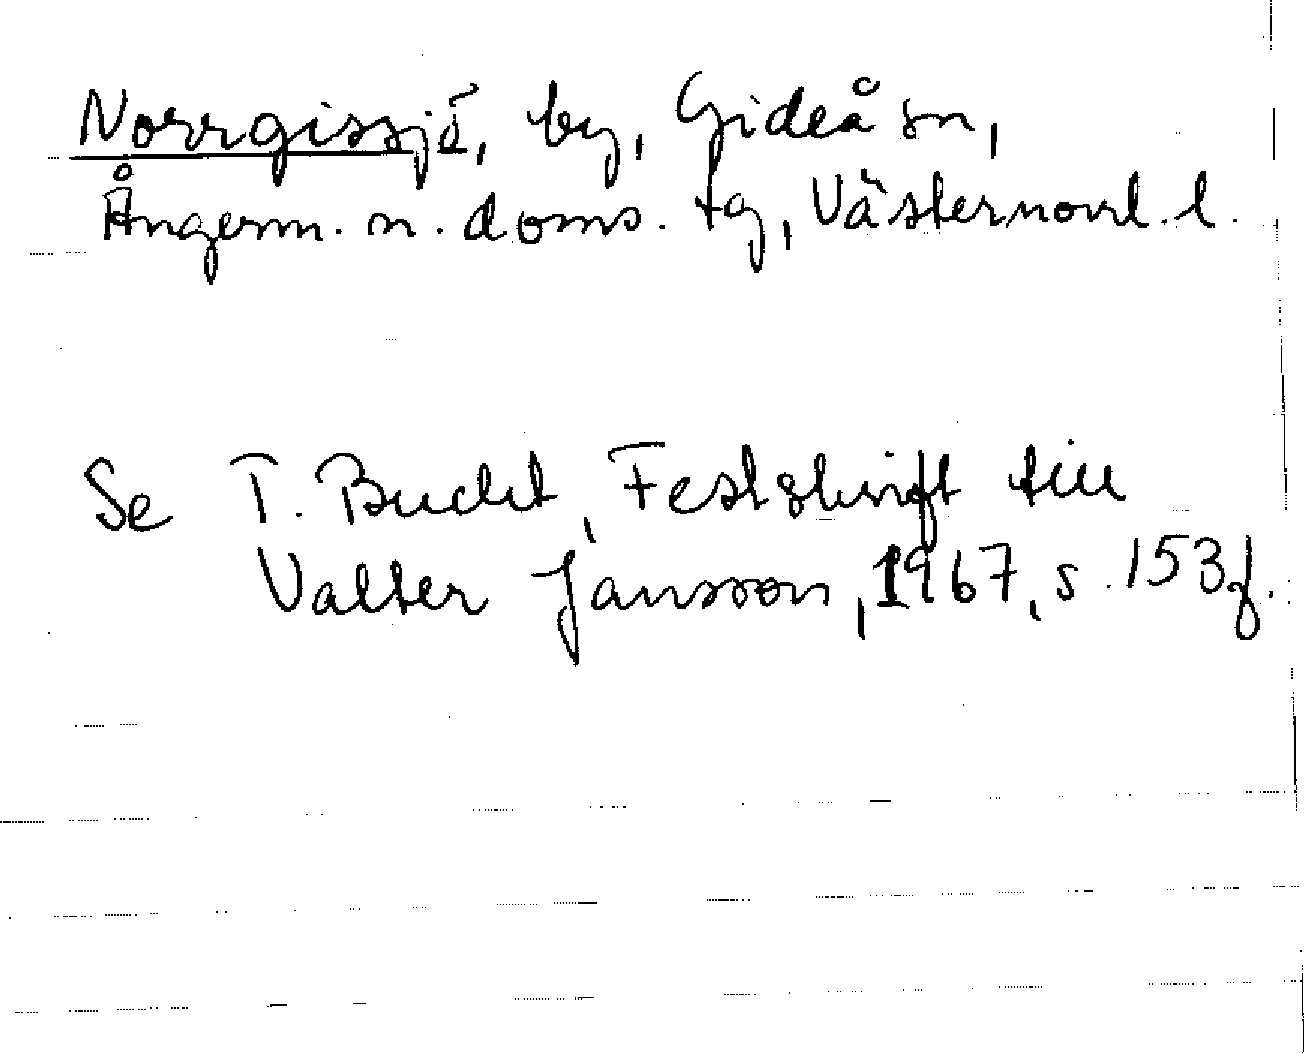 Norrgissjö, by, Gideå sn,
Ångerm. n. doms. tg, Västernorrl. l.
Se T. Bucht, Festskrift till
Valter Jansson, 1967, s. 153f.